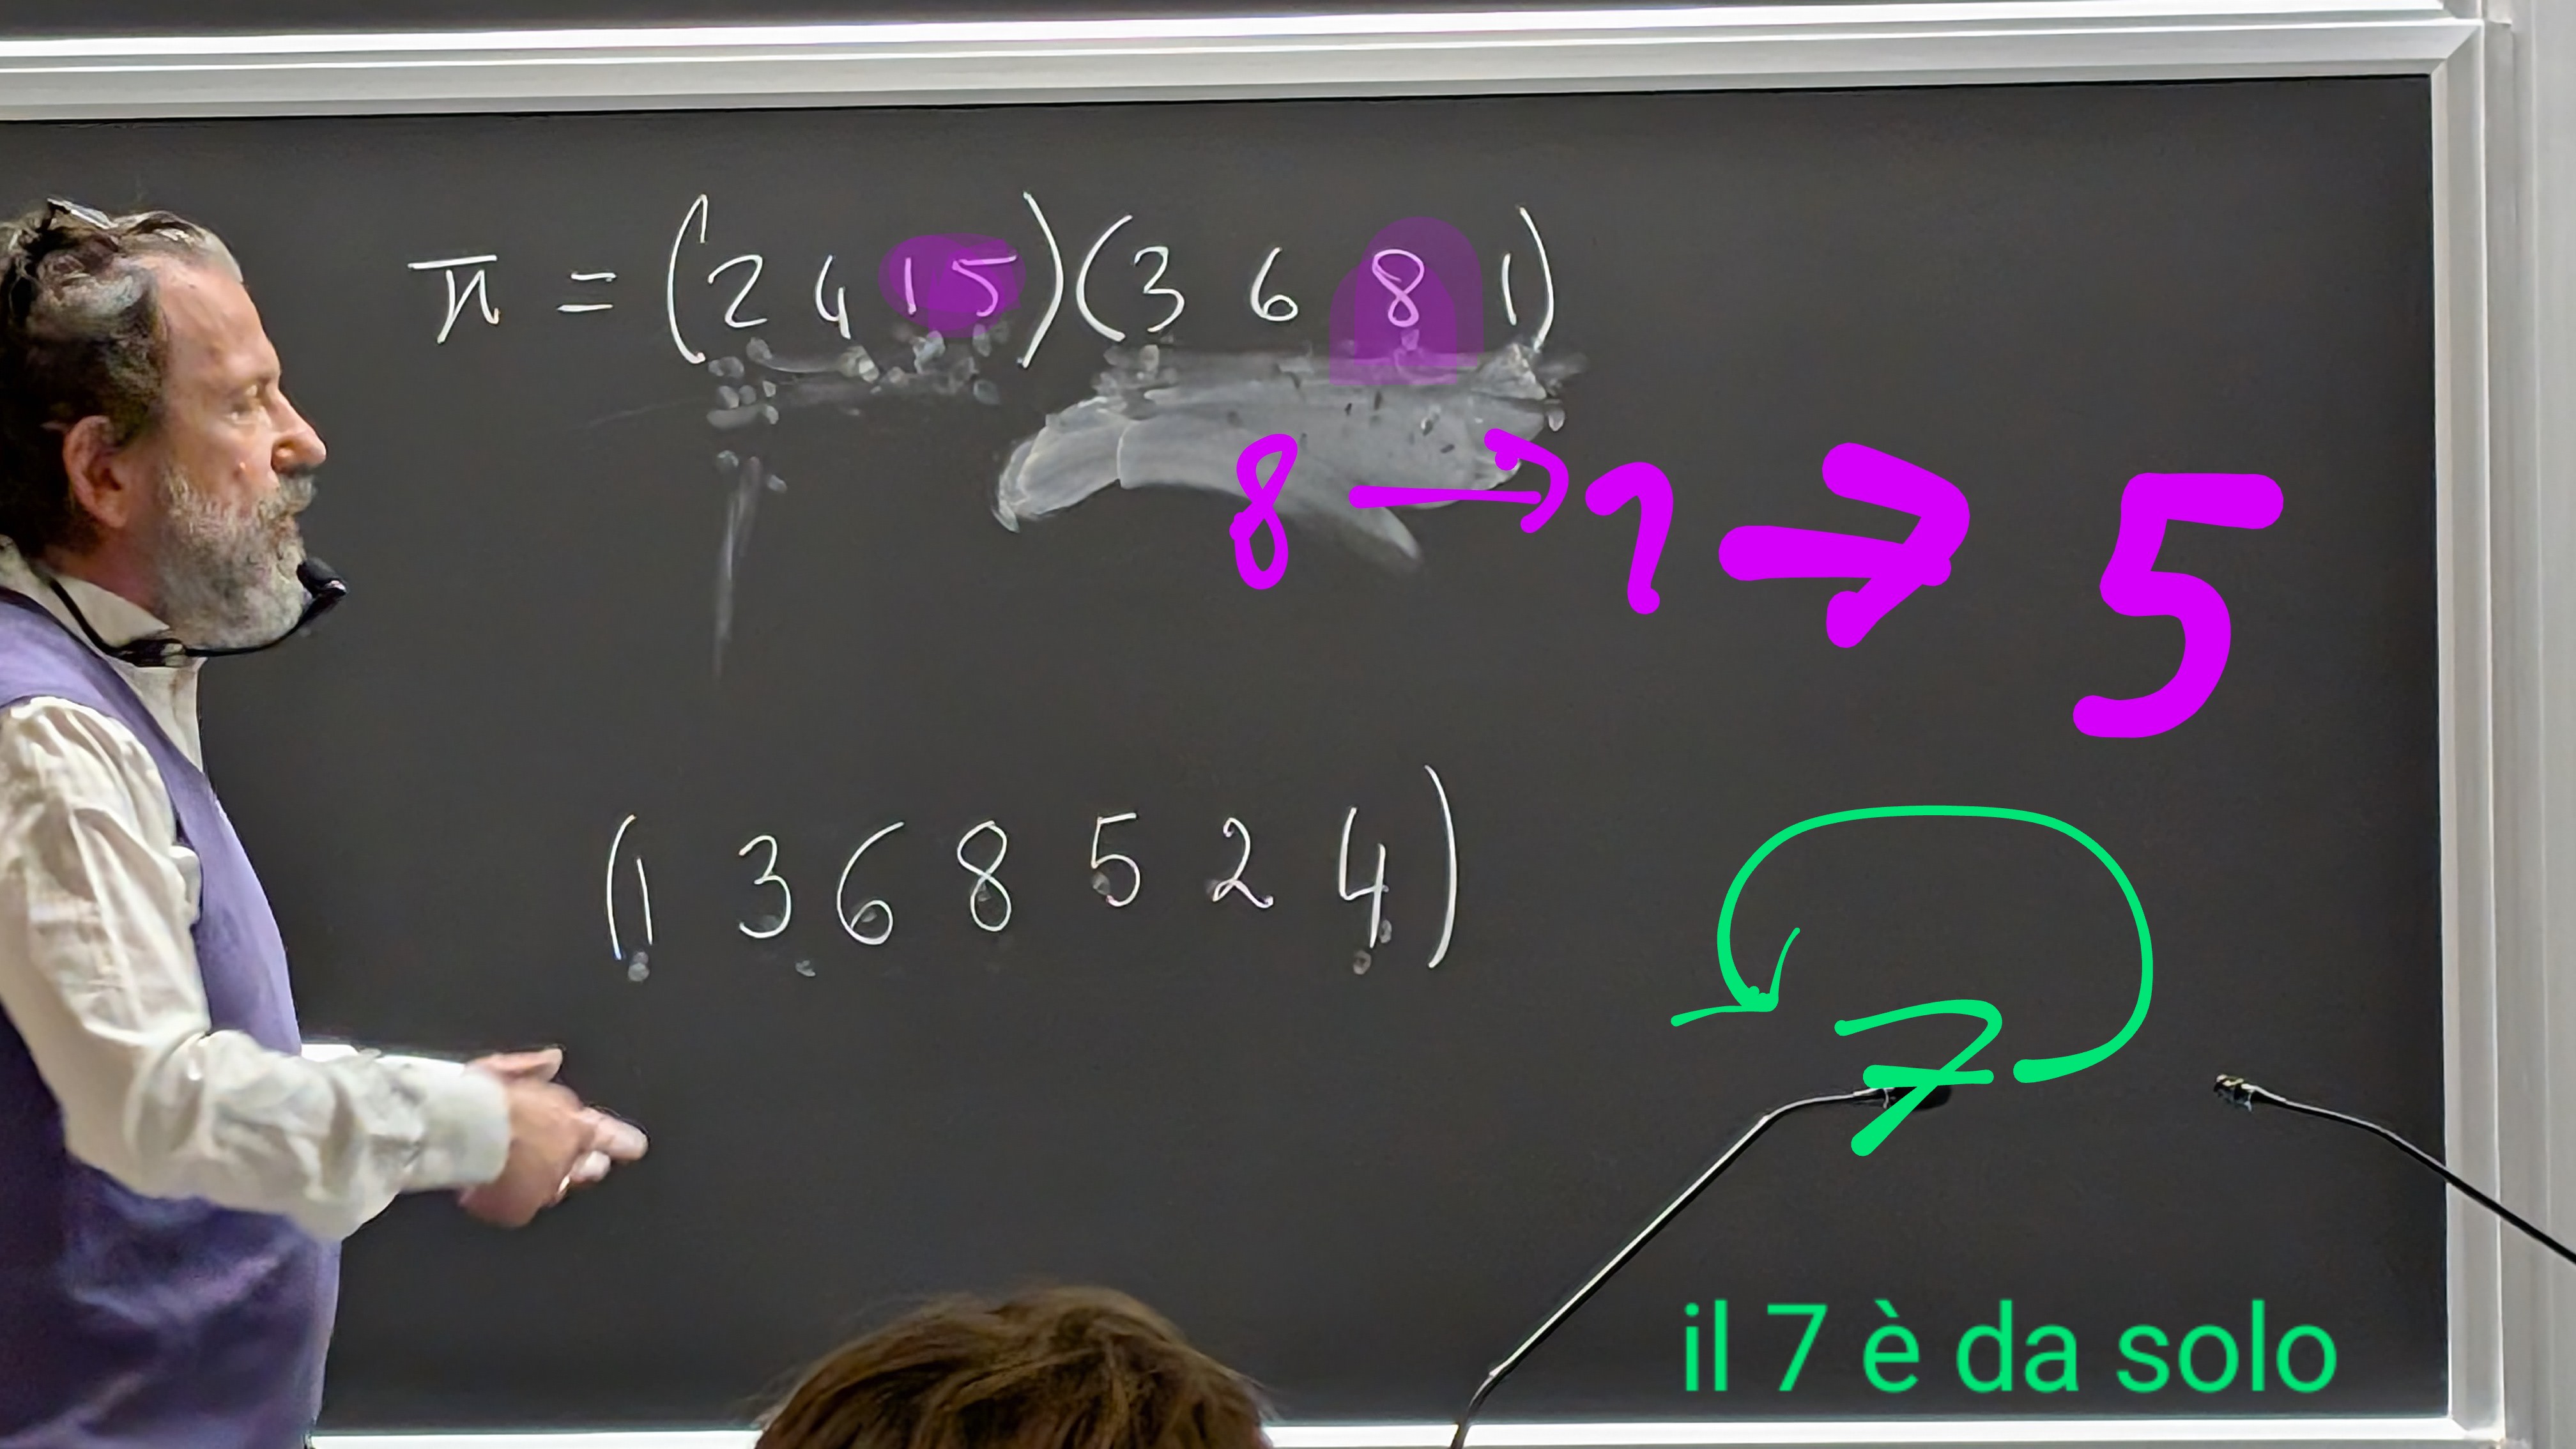 π = (2 4 1 5)(3 6 8 1)
8 → 1 → 5
(1 3 6 8 5 2 4)
7
il 7 è da solo